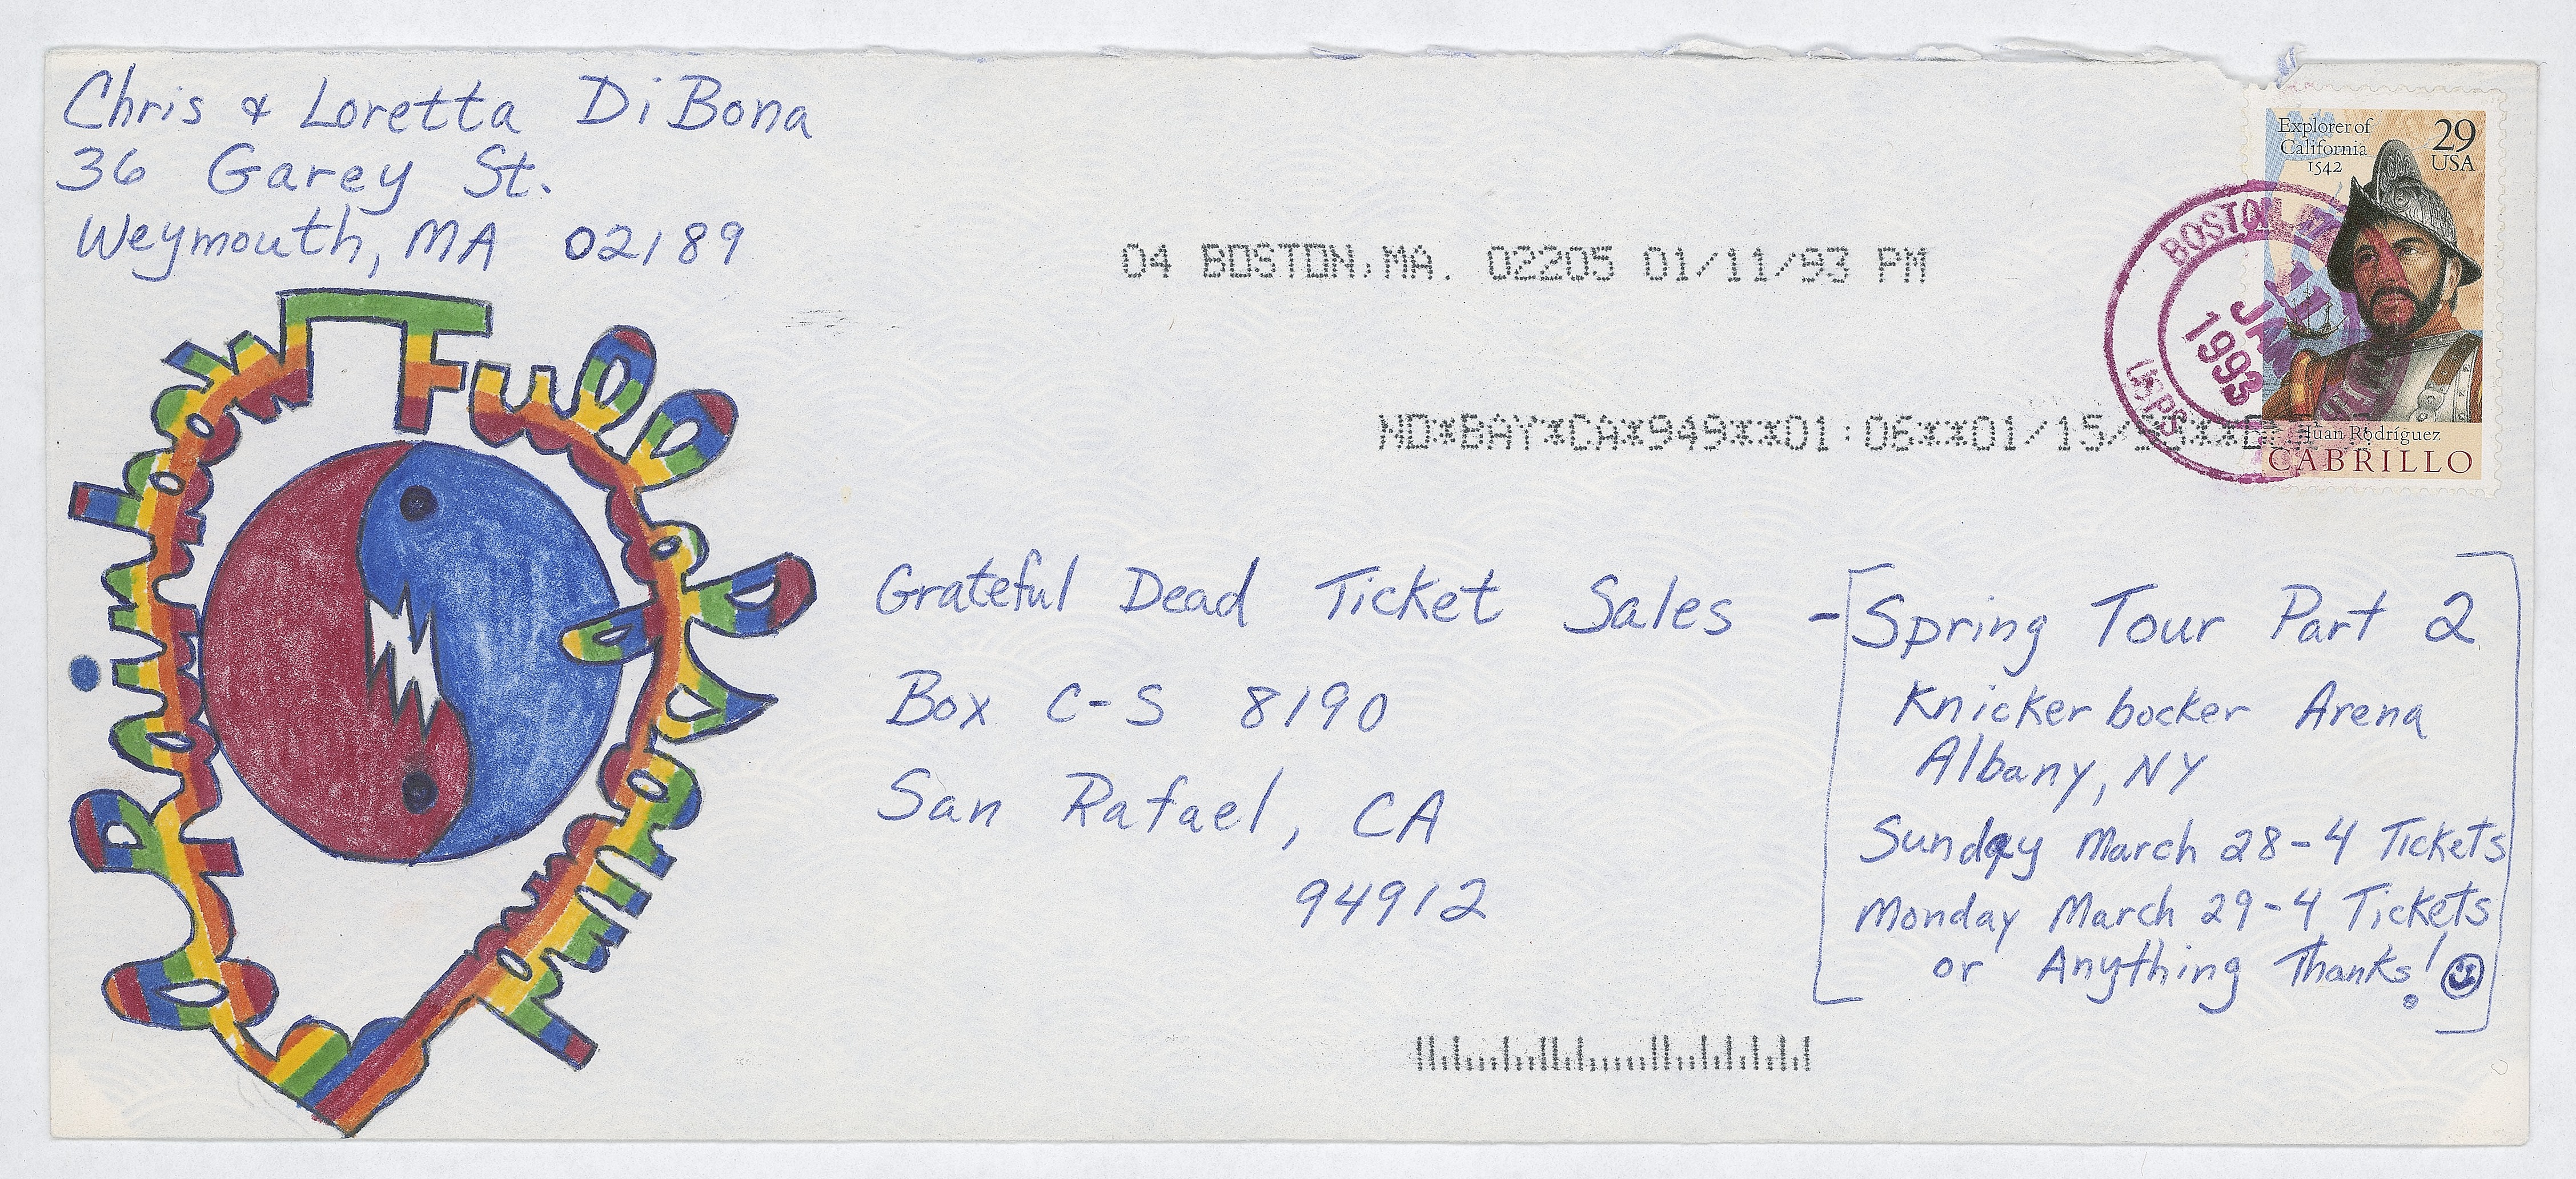 Chris & Loretta DiBona
36 Garey St.
Weymouth, MA 02189
04 BOSTON, MA. 02205 01/11/93 PM
Explorer of
California
1542
29
USA
BOSTON
11
JAN
1993
USPS
ND*BAY*CA*949**01:06**01/15/93**
Juan Rodríguez
CABRILLO
Rainbow Full of Sound
Grateful Dead Ticket Sales
Box C-S 8190
San Rafael, CA
94912
-[Spring Tour Part 2
Knickerbocker Arena
Albany, NY
Sunday March 28-4 Tickets
Monday March 29-4 Tickets
or Anything Thanks! ☺]